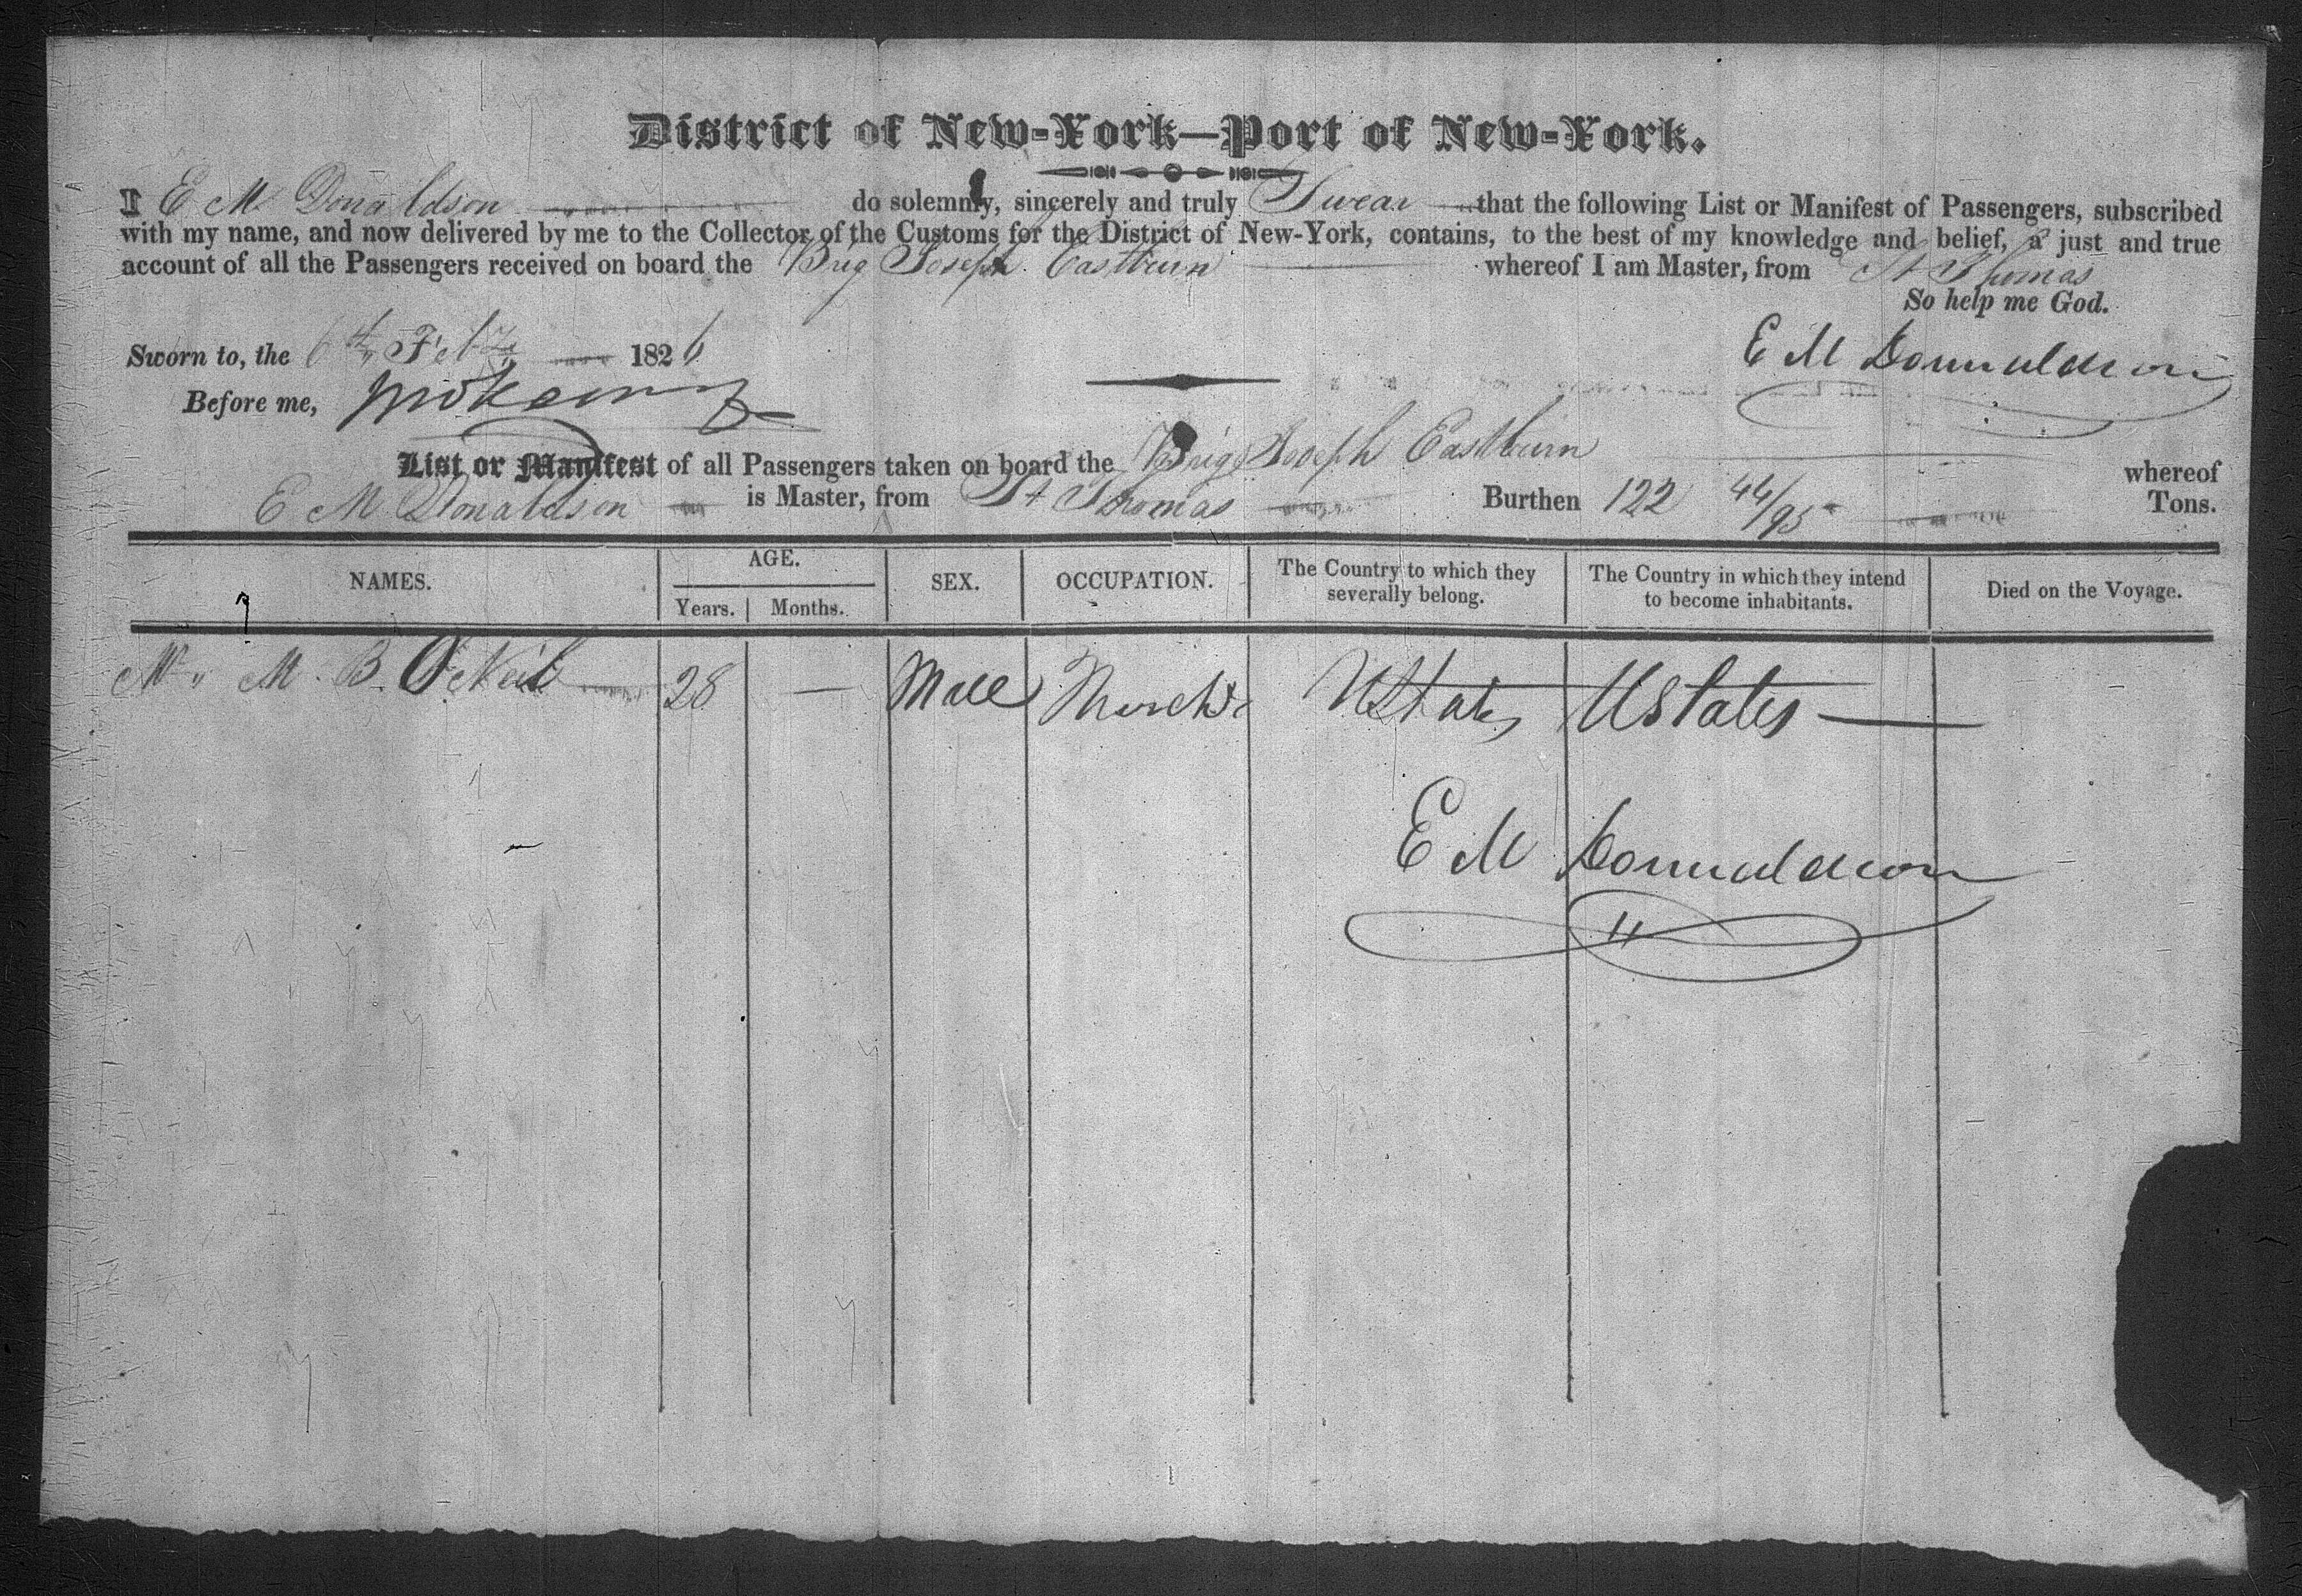 District of New-York—Port of New-York.
I E M Donaldson do solemnly, sincerely and truly Swear that the following List or Manifest of Passengers, subscribed
with my name, and now delivered by me to the Collector of the Customs for the District of New-York, contains, to the best of my knowledge and belief, a just and true
account of all the Passengers received on board the Brig Joseph Eastburn whereof I am Master, from St Thomas
So help me God.
Sworn to, the 6th Feby 1826
E M Donnaldson
Before me,
List or Manifest of all Passengers taken on board the Brig Joseph Eastburn whereof
E M Donaldson is Master, from St Thomas Burthen 122 44/95 Tons.
NAMES. AGE. SEX. OCCUPATION. The Country to which they severally belong. The Country in which they intend to become inhabitants. Died on the Voyage.
Years. Months.
Mr M. B. O'Neil 28 — Male Mercht UStates UStates —
E M Donnaldson